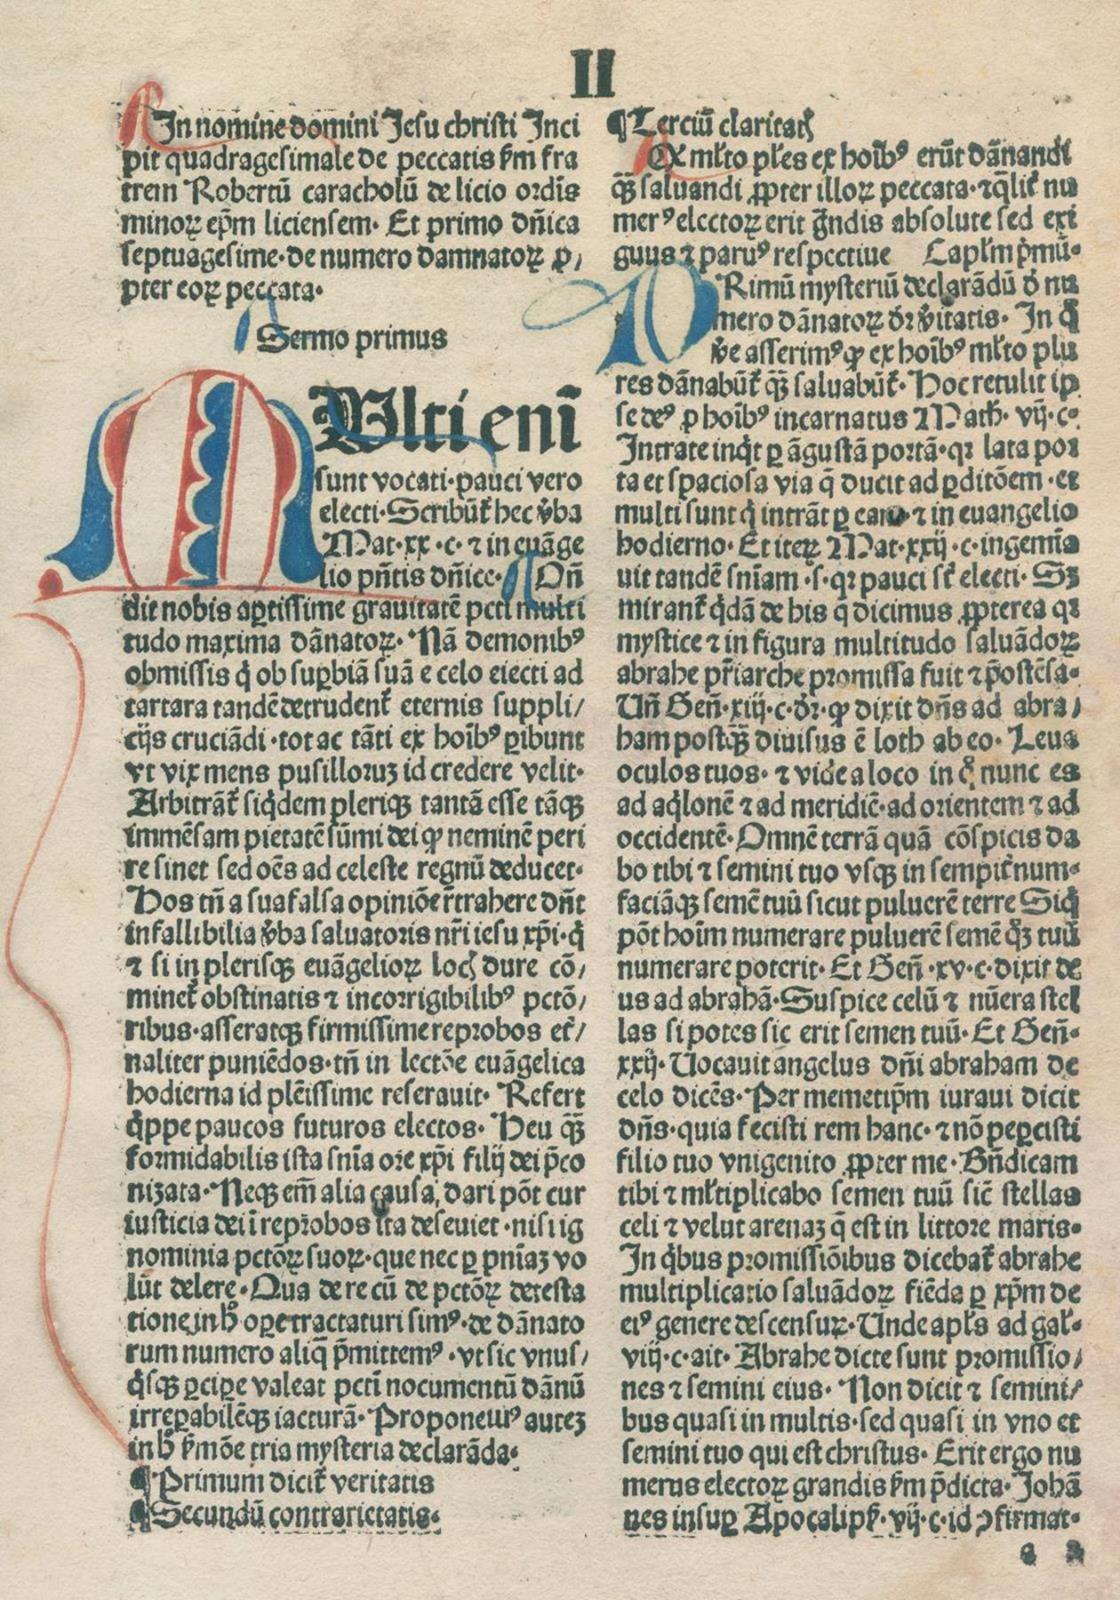 II
In nomine domini Jesu christi Inci
pit quadragesimale de peccatis ẜm fra
trem Robertū caracholū de licio ordīs
minoꝝ epm̄ liciensem· Et primo dn̄ica
septuagesime·de numero damnatoꝝ ꝓ/
pter eoꝝ peccata·
Sermo primus
MUlti enī
sunt vocati·pauci vero
electi·Scribūt᷑ hec v̄ba
Mat·xx·c·⁊ in euāge
lio pn̄tis dn̄ice· On̄
dit nobis aptissime grauitatē pcti multi
tudo maxima dānatoꝝ· Nā demonibꝰ
obmissis q̇ ob suꝑbiā suā e celo eiecti ad
tartara tandē detrudent᷑ eternis suppli/
cijs cruciādi·tot ac tāti ex hoīb⁹ ꝑibunt
vt vix mens pusilloruꝫ id credere velit·
Arbitrāt᷑ siq̇dem pleriqꝫ tantā esse tāqꝫ
immēsam pietatē sūmi dei ꝙ neminē peri
re sinet sed oēs ad celeste regnū deducet·
Hos tn̄ a sua falsa opiniōe rētrahere dn̄t
infallibilia v̄ba saluatoris nr̄i iesu xp̄i·q̇
⁊ si in plerisqꝫ euāgelioꝝ locꝭ dure cō/
minet᷑ obstinatis ⁊ incorrigibilibꝰ pctō/
ribus·asseratqꝫ firmissime reprobos et᷑/
naliter puniēdos·tn̄ in lectōe euāgelica
hodierna id plēissime reserauit· Refert
q̇ppe paucos futuros electos· Heu qꝫ̄
formidabilis ista sn̄ia ore xp̄i filij dei p̄co
nizata· Neqꝫ em̄ alia causa dari pōt cur
iusticia dei ī reprobos ita deseuiet·nisi ig
nominia pctōꝝ suoꝝ·que nec ꝑ pn̄iaꝫ vo
lūt delere· Qua de re cū de pctōꝝ detesta
tione in hͦ oꝑe tractaturi simꝰ·de dānato
rum numero aliq̄ p̄mittemꝰ·vt sic vnus/
q̇sqꝫ ꝑciꝑe valeat pcti nocumentū dānū
irreꝑabilēqꝫ iacturā· Proponetuꝰ auteꝫ
in hͦ ẜmōe tria mysteria declarāda·
¶Primum dicit᷑ veritatis
¶Secundū contrarietatis·
¶Terciū claritatꝭ
QꝪ ml̄to pl̄es ex hoībꝰ erūt dānandi
qꝫ̄ saluandi ꝓpter illoꝝ peccata·⁊q̄lit᷑ nu
merꝰ electoꝝ erit grandis absolute sed exi
guus ⁊ paruꝰ respectiue Capl̄m p̄mū·
PRimū mysteriū declarādū ḋ nu
mero dānatoꝝ dr̄ v̄itatis· In q̊
v̄e asserimꝰ ꝙ ex hoībꝰ ml̄to plu
res dānabūt᷑ qꝫ̄ saluabūt᷑· Hoc retulit ip
se deꝰ ꝓ hoībꝰ incarnatus Math· vij·c·
Intrate inq̇t ꝑ āgustā portā·qꝛ lata por
ta et spaciosa via q̄ ducit ad ꝑditōem·et
multi sunt q̇ intrāt ꝑ eam ⁊ in euangelio
hodierno· Et iteꝝ Mat·xxij·c·ingemīa
uit tandē sn̄iam·s·qꝛ pauci st̄ electi· Sꝫ
mirant᷑ q̇dā de his q̄ dicimus ꝓpterea qꝛ
mystice ⁊ in figura multitudo saluādoꝝ
abrahe pr̄iarche promissa fuit ⁊ p̄ostēsa·
Un̄ Gen̄·xiij·c·dr̄·ꝙ dixit dn̄s ad abra/
ham postqꝫ̄ diuisus ē loth ab eo· Leua
oculos tuos·⁊ vide a loco in q̊ nunc es
ad aq̇lonē ⁊ ad meridiē·ad orientem ⁊ ad
occidentē· Omnē terrā quā cōspicis da
bo tibi ⁊ semini tuo vsqꝫ in sempit᷑num·
faciāqꝫ semē tuū sicut puluerē terre Siq̇
pōt hoīm numerare puluerē semē q̊ꝫ tuū
numerare poterit· Et Gen̄·xv·c·dixit de
us ad abrahā· Suspice celū ⁊ nūera stel
las si potes sic erit semen tuū· Et Gen̄·
xxij· Uocauit angelus dn̄i abraham de
celo dicēs· Per memetip̄m iuraui dicit
dn̄s·quia fecisti rem hanc·⁊ nō peꝑcisti
filio tuo vnigenito ꝓpter me· Bn̄dicam
tibi ⁊ ml̄tiplicabo semen tuū sic̄ stellas
celi ⁊ velut arenaꝫ q̄ est in littore maris·
In q̇bus promissiōibus dicebat᷑ abrahe
multiplicatio saluādoꝝ fiēda ꝑ xp̄m de
eiꝰ genere descensuꝝ· Unde apl̄s ad gal̄·
viij·c·ait· Abrahe dicte sunt promissio/
nes ⁊ semini eius· Non dicit ⁊ semini/
bus quasi in multis·sed quasi in vno et
semini tuo qui est christus· Erit ergo nu
merus electoꝝ grandis ẜm p̄dicta· Johā
nes insuꝑ Apocalip̄·vij·c·id ꝯfirmat·